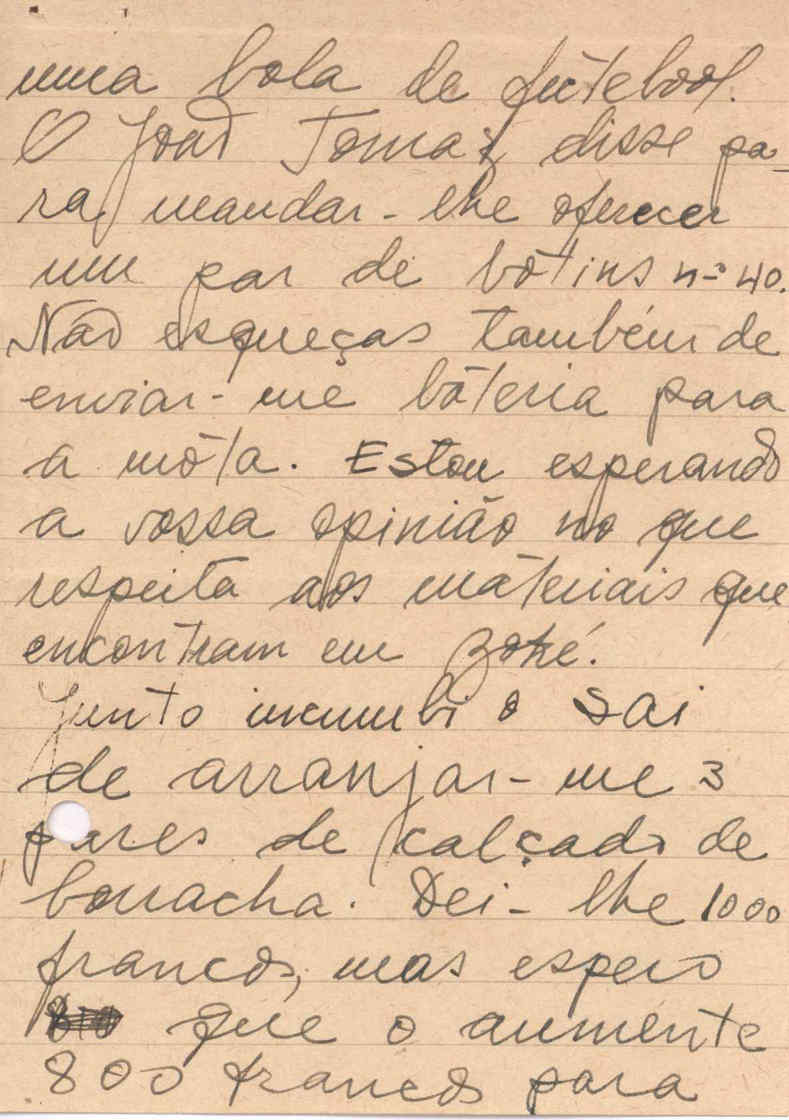 uma bola de fútebool.
O João Tomaz disse pa-
ra mandar-lhe oferecer
um par de bòtins nº 40.
Não esqueças também de
enviar-me bàteria para
a mòta. Estou esperando
a vossa opinião no que
respeita aos màteriais que
encontram em Boké.
Junto incumbi o Sai
de arranjar-me 3
pares de calçado de
borracha. Dei-lhe 1000
francos, mas espero
que o aumente
800 francos para